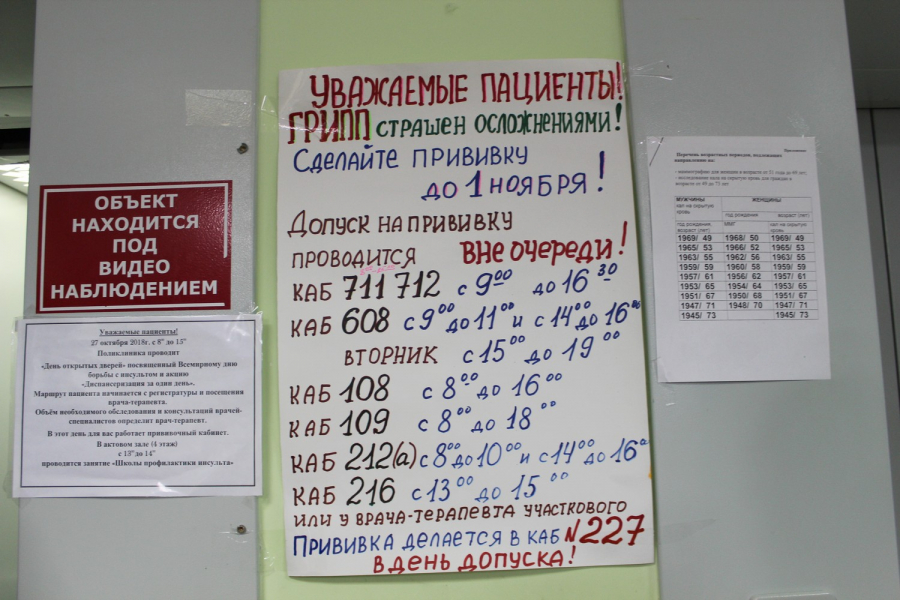 ОБЪЕКТ
НАХОДИТСЯ
ПОД
ВИДЕО
НАБЛЮДЕНИЕМ
Уважаемые пациенты!
27 октября 2018г. с 8°° до 15°°
Поликлиника проводит
«День открытых дверей» посвященный Всемирному дню
борьбы с инсультом и акцию
«Диспансеризация за один день».
Маршрут пациента начинается с регистратуры и посещения
врача-терапевта.
Объём необходимого обследования и консультаций врачей-
специалистов определит врач-терапевт.
В этот день для вас работает прививочный кабинет.
В актовом зале (4 этаж)
с 13°° до 14°°
проводится занятие «Школы профилактики инсульта»
УВАЖАЕМЫЕ ПАЦИЕНТЫ!
ГРИПП СТРАШЕН ОСЛОЖНЕНИЯМИ!
СДЕЛАЙТЕ ПРИВИВКУ
ДО 1 НОЯБРЯ!
ДОПУСК НА ПРИВИВКУ
ПРОВОДИТСЯ ВНЕ ОЧЕРЕДИ!
КАБ 711 712 с 9⁰⁰ до 16³⁰
КАБ 608 с 9⁰⁰ до 11⁰⁰ и с 14⁰⁰ до 16⁰⁰
ВТОРНИК с 15⁰⁰ до 19⁰⁰
КАБ 108 с 8⁰⁰ до 16⁰⁰
КАБ 109 с 8⁰⁰ до 18⁰⁰
КАБ 212(а) с 8⁰⁰ до 10⁰⁰ и с 14⁰⁰ до 16⁰⁰
КАБ 216 с 13⁰⁰ до 15⁰⁰
ИЛИ У ВРАЧА-ТЕРАПЕВТА УЧАСТКОВОГО
ПРИВИВКА ДЕЛАЕТСЯ В КАБ №227
В ДЕНЬ ДОПУСКА!
Приложение
Перечень возрастных периодов, подлежащих
направлению на:
- маммографию для женщин в возрасте до 70 лет,
- исследование кала на скрытую кровь для граждан в
возрасте от 49 до 73 лет.
МУЖЧИНЫ ЖЕНЩИНЫ
кал на скрытую
кровь год рождения возраст (лет)
год рождения ММГ кал на скрытую
возраст (лет) кровь
1969/ 49 1968/ 50 1969/ 49
1965/ 53 1966/ 52 1965/ 53
1963/ 55 1962/ 56 1963/ 55
1959/ 59 1960/ 58 1959/ 59
1957/ 61 1956/ 62 1957/ 61
1953/ 65 1954/ 64 1953/ 65
1951/ 67 1950/ 68 1951/ 67
1947/ 71 1948/ 70 1947/ 71
1945/ 73 1945/ 73